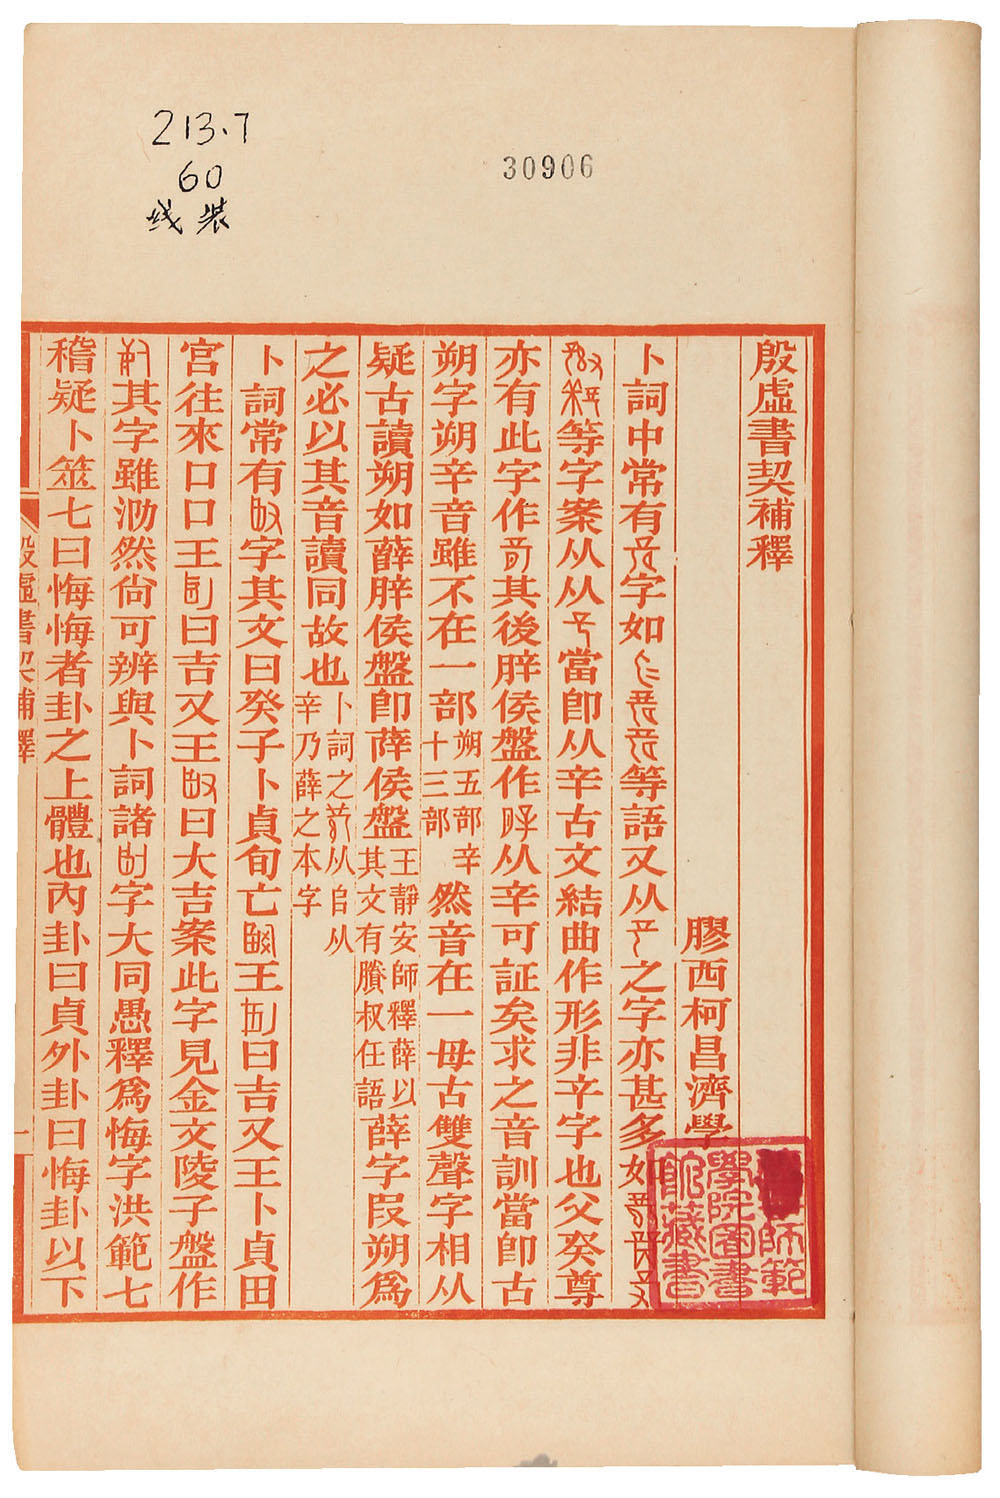 213.7
60
线装
30906
殷虛書契補釋
膠西柯昌濟學
卜詞中常有字如等語又从之字亦甚多如
等字案从从當卽从辛古文結曲作形非辛字也父癸尊
亦有此字作其後辥侯盤作从辛可証矣求之音訓當卽古
朔字朔辛音雖不在一部朔五部辛十三部然音在一母古雙聲字相从
疑古讀朔如薛辥侯盤卽薛侯盤王靜安師釋薛以其文有賸叔任語薛字叚朔爲
之必以其音讀同故也卜詞之从𠂤从辛乃薛之本字
卜詞常有字其文曰癸子卜貞旬亡王曰吉又王卜貞田
宮往來口口王曰吉又王曰大吉案此字見金文陵子盤作
其字雖泐然尙可辨與卜詞諸字大同愚釋爲悔字洪範七
稽疑卜筮七曰悔悔者卦之上體也內卦曰貞外卦曰悔卦以下
殷虛書契補釋
一
師範
學院圖書
館藏書